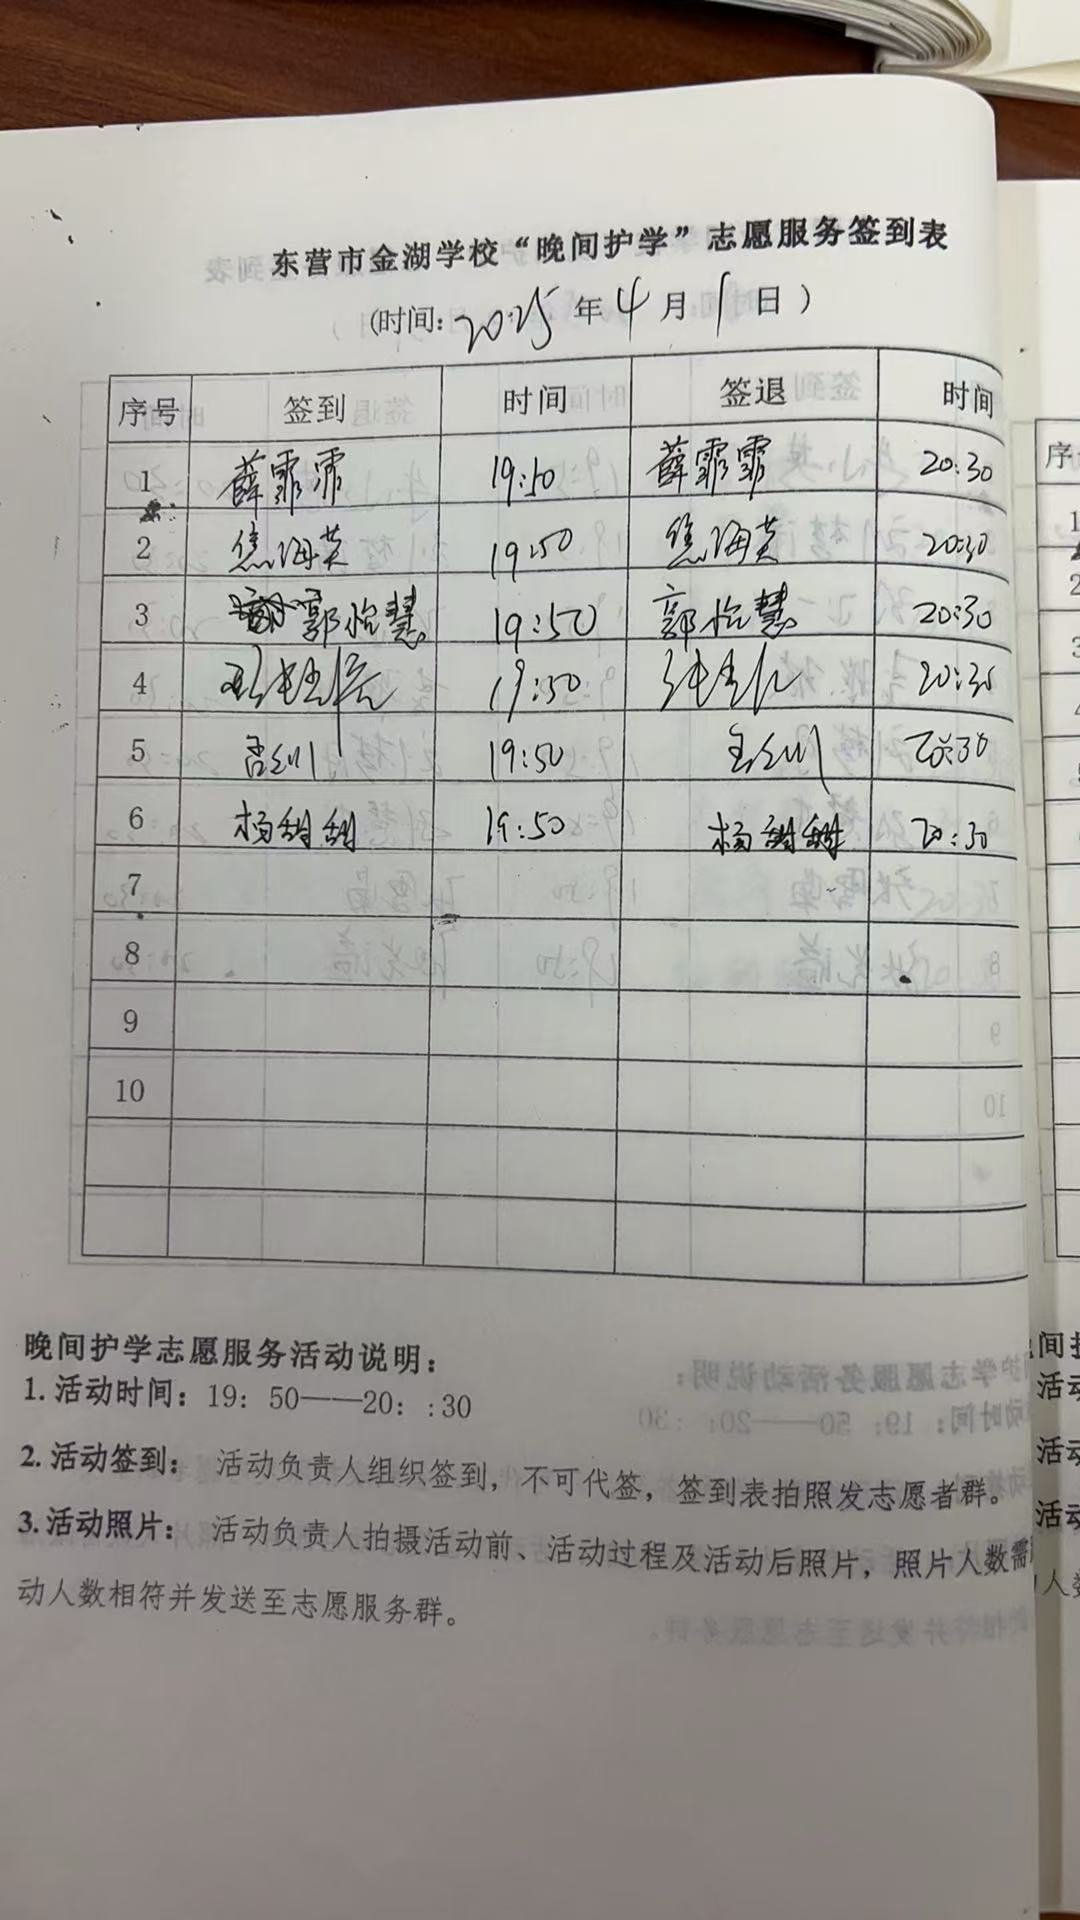 东营市金湖学校“晚间护学”志愿服务签到表
(时间: 2025 年 4 月 1 日 )
序号 签到 时间 签退 时间
1 薛霏霏 19:50 薛霏霏 20:30
2 焦海英 19:50 焦海英 20:30
3 郭怡慧 19:50 郭怡慧 20:30
4 19:50 20:30
5 19:50 20:30
6 杨甜甜 19:50 杨甜甜 20:30
7
8
9
10
晚间护学志愿服务活动说明:
1. 活动时间: 19: 50——20: :30
2. 活动签到: 活动负责人组织签到, 不可代签, 签到表拍照发志愿者群。
3. 活动照片: 活动负责人拍摄活动前、活动过程及活动后照片, 照片人数需
动人数相符并发送至志愿服务群。